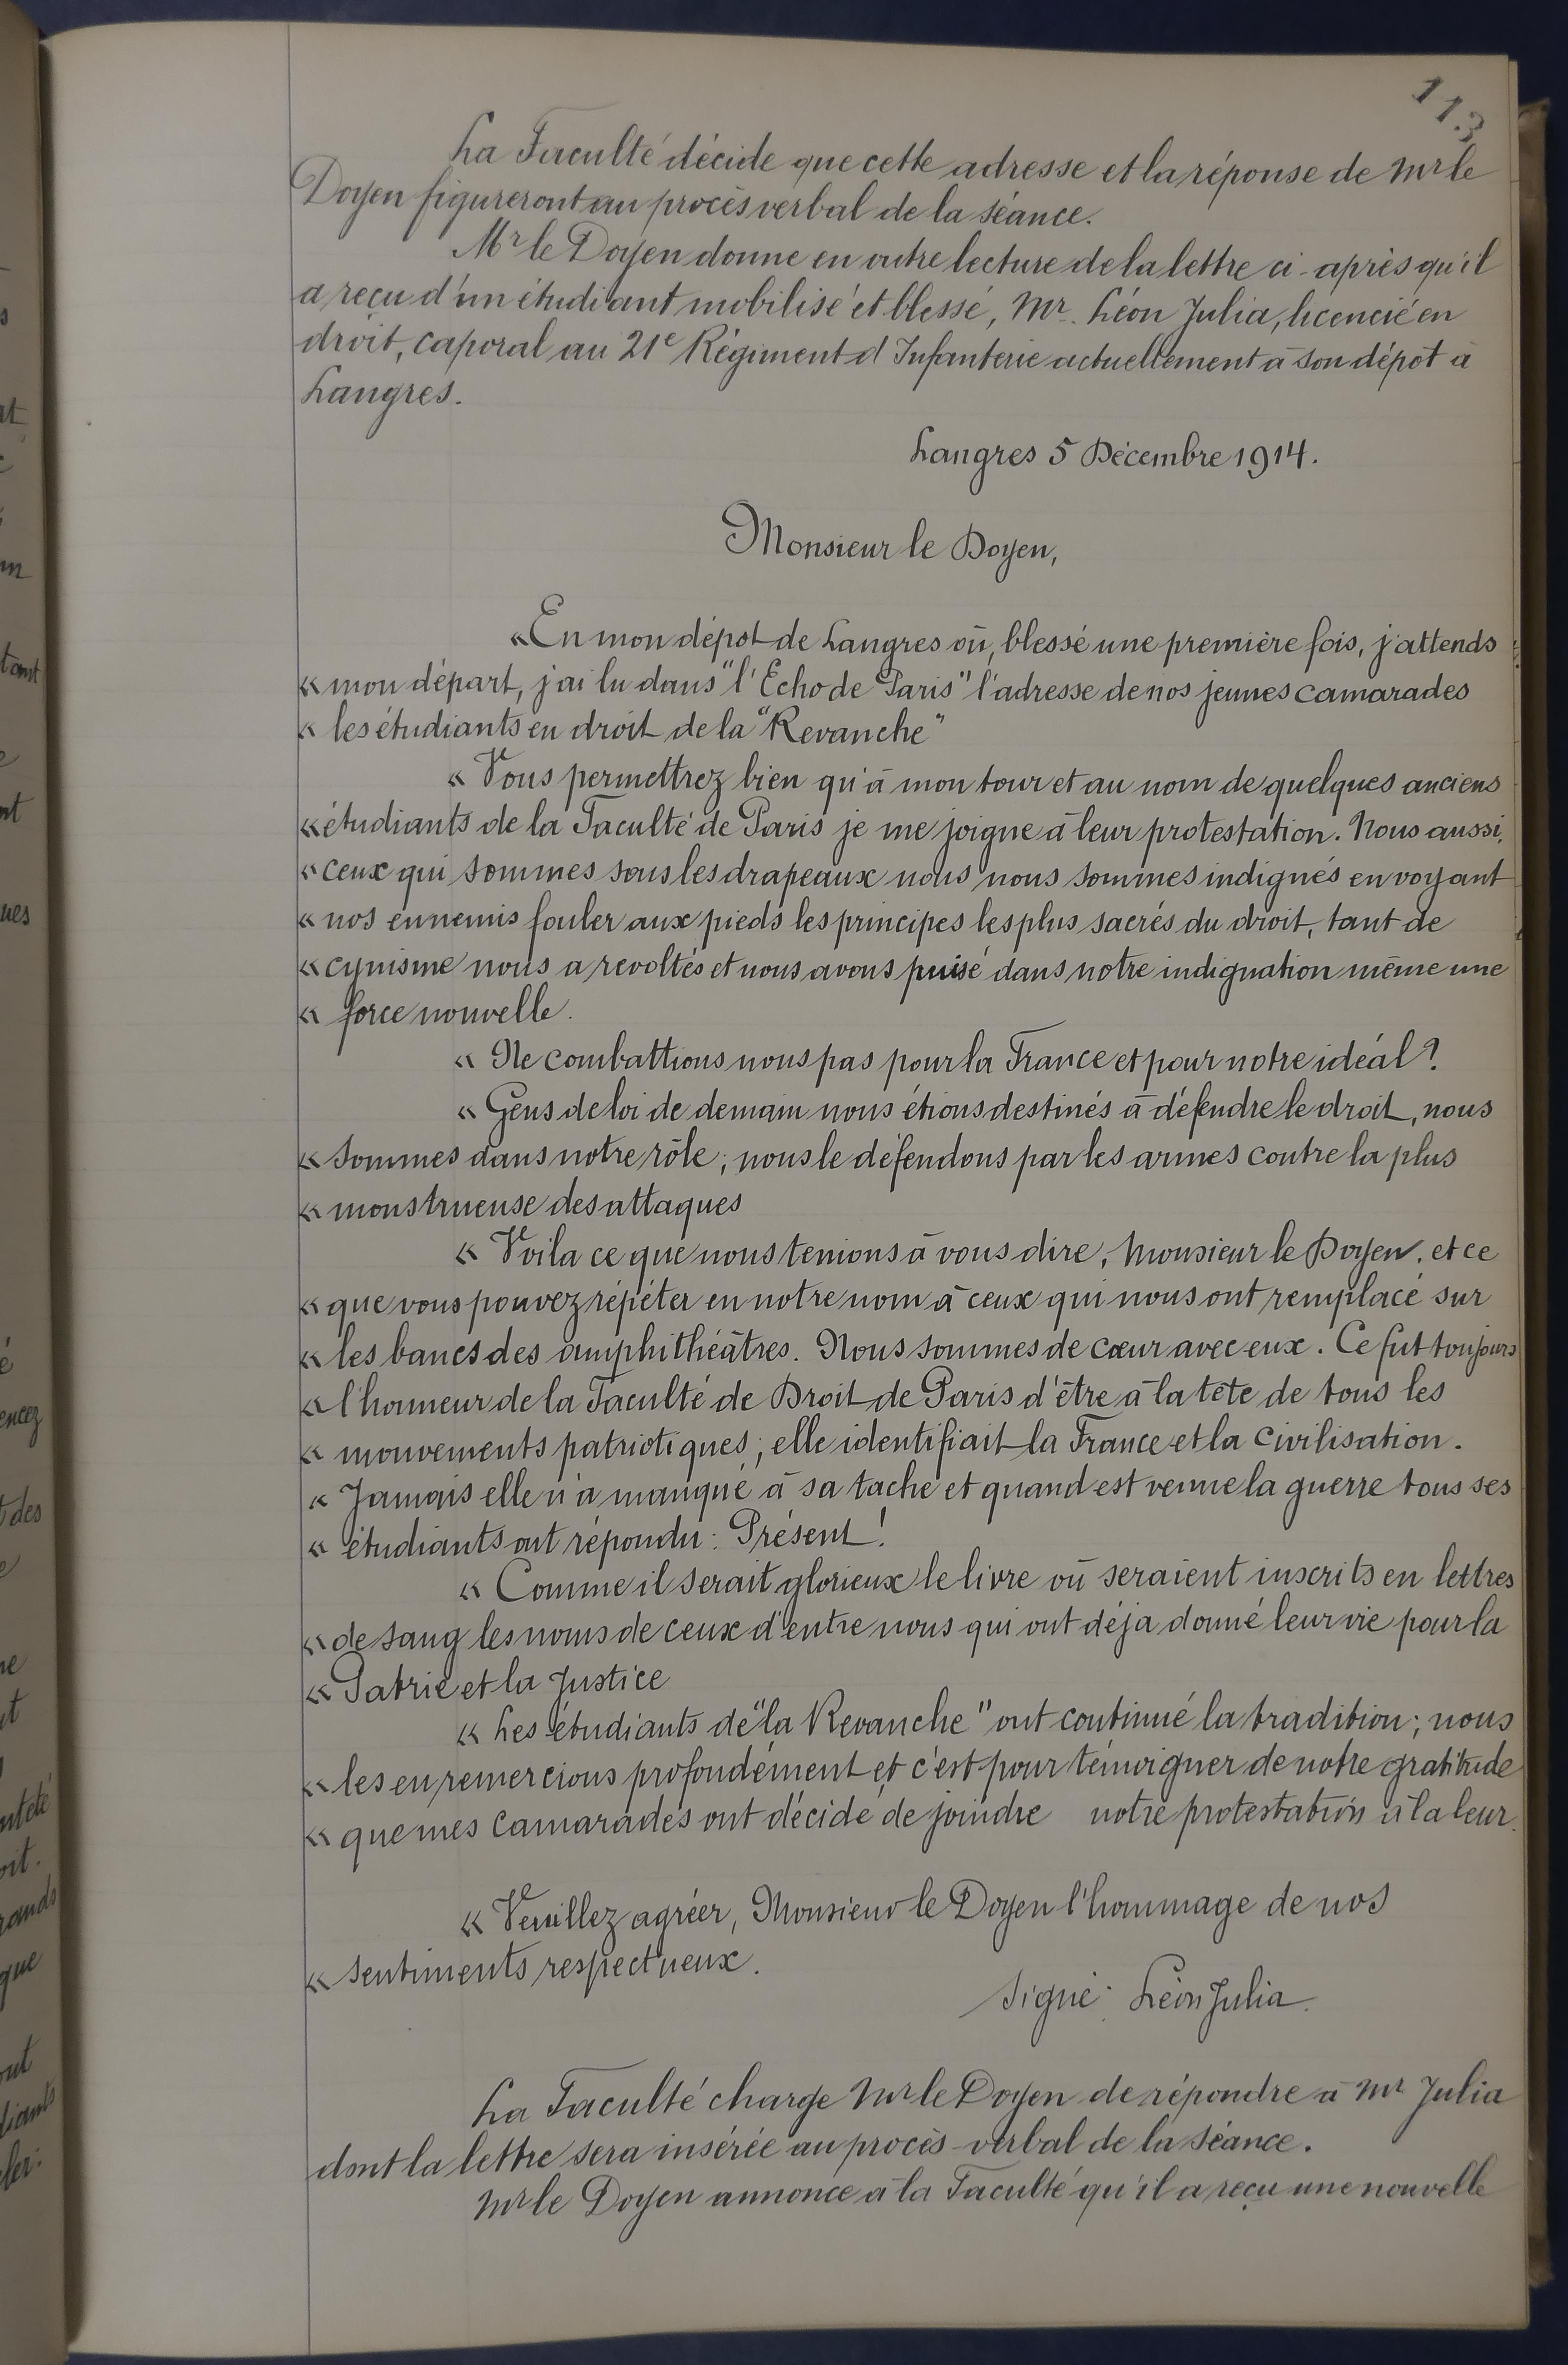 113
La Faculté décide que cette adresse et la réponse de Mr le
Doyen figureront au procès verbal de la séance.
Mr le Doyen donne en outre lecture de la lettre ci-après qu'il
a reçu d'un étudiant mobilisé et blessé, Mr. Léon Julia, licencié en
droit, caporal au 21e Régiment d'Infanterie actuellement à son dépôt à
Langres.
Langres 5 Décembre 1914.
Monsieur le Doyen,
« En mon dépot de Langres où, blessé une première fois, j'attends
« mon départ, j'ai lu dans "l'Echo de Paris" l'adresse de nos jeunes camarades
« les étudiants en droit de la "Revanche"
« Vous permettrez bien qu'à mon tour et au nom de quelques anciens
« étudiants de la Faculté de Paris je me joigne à leur protestation. Nous aussi,
« ceux qui sommes sous les drapeaux nous nous sommes indignés en voyant
« nos ennemis fouler aux pieds les principes les plus sacrés du droit, tant de
« cynisme nous a revoltés et nous avons puisé dans notre indignation même une
« force nouvelle.
« Ne combattions nous pas pour la France et pour notre idéal ?
« Gens de loi de demain nous étions destinés à défendre le droit, nous
« sommes dans notre rôle ; nous le défendons par les armes contre la plus
« monstrueuse des attaques
« Voila ce que nous tenions à vous dire, Monsieur le Doyen, et ce
« que vous pouvez répéter en notre nom à ceux qui nous ont remplacé sur
« les bancs des amphithéâtres. Nous sommes de cœur avec eux. Ce fut toujours
« l'honneur de la Faculté de Droit de Paris d'être à la tête de tous les
« mouvements patriotiques ; elle identifiait la France et la Civilisation.
« Jamais elle n'a manqué à sa tache et quand est venue la guerre tous ses
« étudiants ont répondu : Présent !
« Comme il serait glorieux le livre où seraient inscrits en lettres
« de sang les noms de ceux d'entre nous qui ont déja donné leur vie pour la
« Patrie et la Justice
« Les étudiants de "la Revanche" ont continué la tradition ; nous
« les en remercions profondément et c'est pour témoigner de notre gratitude
« que mes camarades ont décidé de joindre notre protestation à la leur.
« Veuillez agréer, Monsieur le Doyen l'hommage de nos
« sentiments respectueux.
Signé : Léon Julia.
La Faculté charge Mr le Doyen de répondre à Mr Julia
dont la lettre sera insérée au procès-verbal de la séance.
Mr le Doyen annonce à la Faculté qu'il a reçu une nouvelle